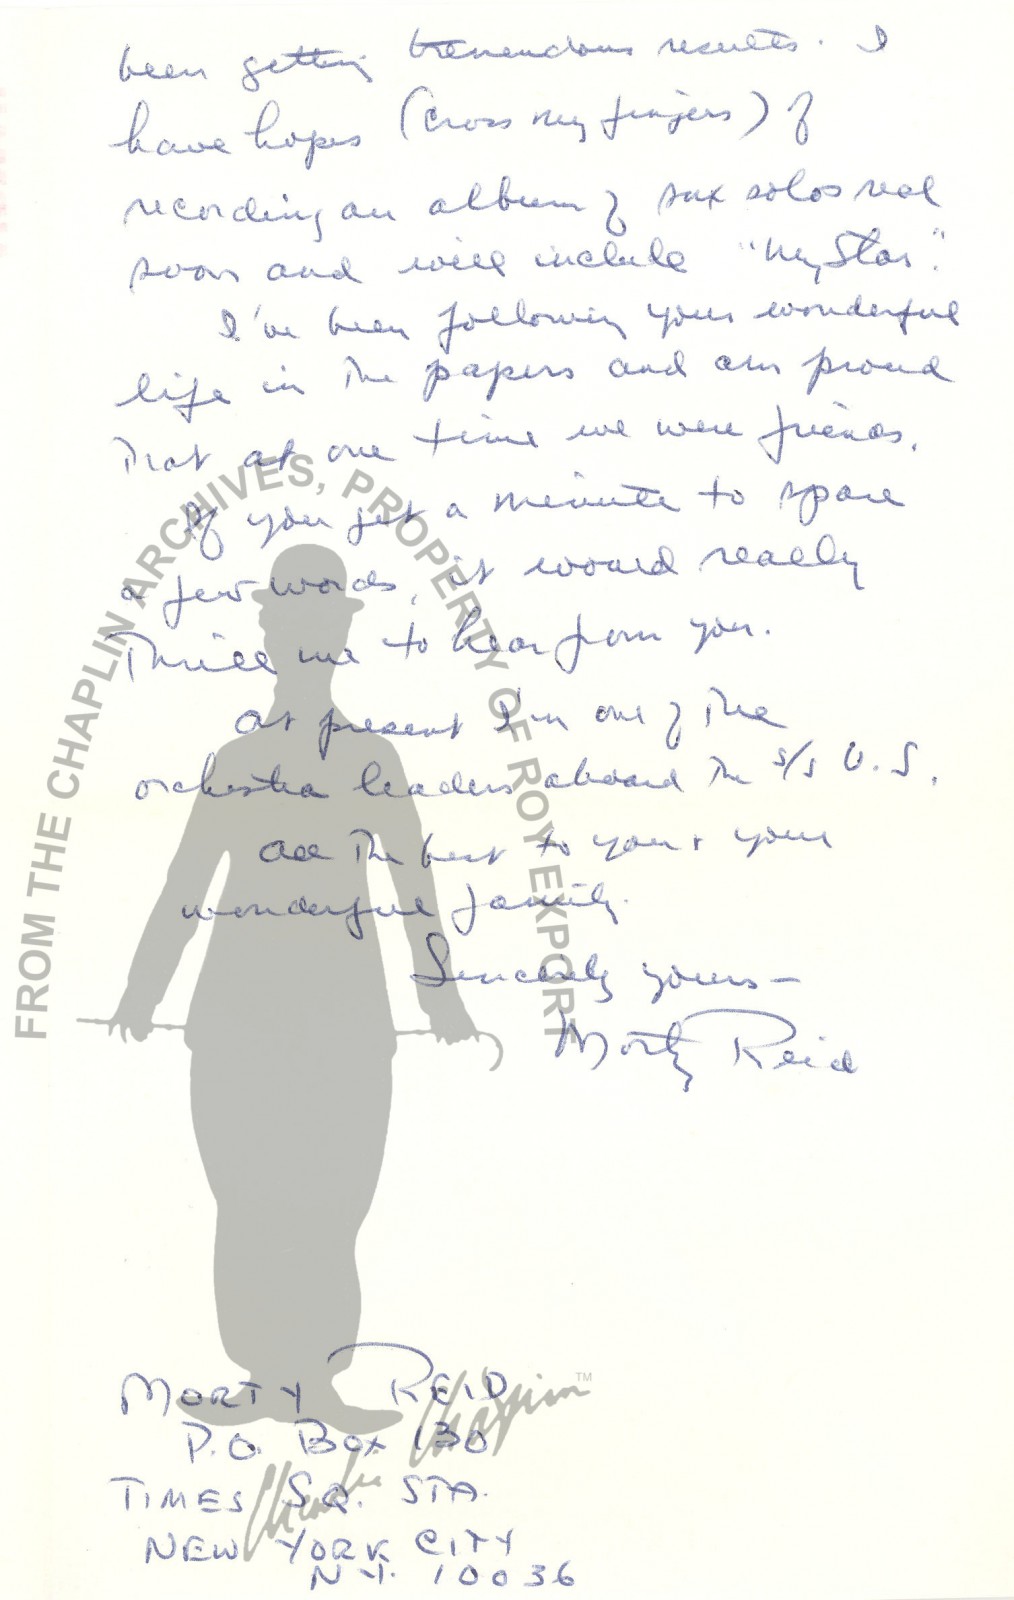 been getting tremendous results. I
have hopes (cross my fingers) of
recording an album of sax solos real
soon and will include "My Star."
I've been following your wonderful
life in the papers and am proud
that at one time we were friends.
If you get a minute to spare
a few words, it would really
thrill me to hear from you.
At present I'm one of the
orchestra leaders aboard the s/s U.S.
All the best to you & your
wonderful family.
Sincerely yours—
Morty Reid
FROM THE CHAPLIN ARCHIVES, PROPERTY OF ROY EXPORT
MORTY REID
P.O. BOX 130
TIMES SQ. STA.
NEW YORK CITY
N.Y. 10036
Charles Chaplin™